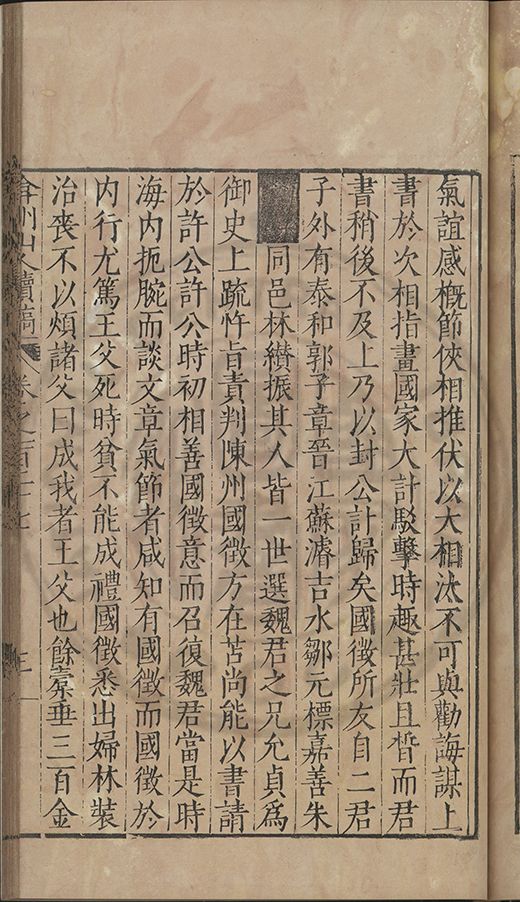 氣誼感槪節俠相推伏以大相汰不可與勸誨謀上
書於次相指畫國家大計駁擊時趣甚壯且晳而君
書稍後不及上乃以封公計歸矣國徵所友自二君
子外有泰和郭子章晉江蘇濬吉水鄒元標嘉善朱
同邑林纉振其人皆一世選魏君之兄允貞爲
御史上䟽忤旨責判陳州國徵方在苫尚能以書請
於許公許公時初相善國徵意而召復魏君當是時
海内扼腕而談文章氣節者咸知有國徵而國徵於
内行尤篤王父死時貧不能成禮國徵悉出婦林裝
治喪不以煩諸父曰成我者王父也餘橐垂三百金
弇州山人續稿 卷之一百二十七